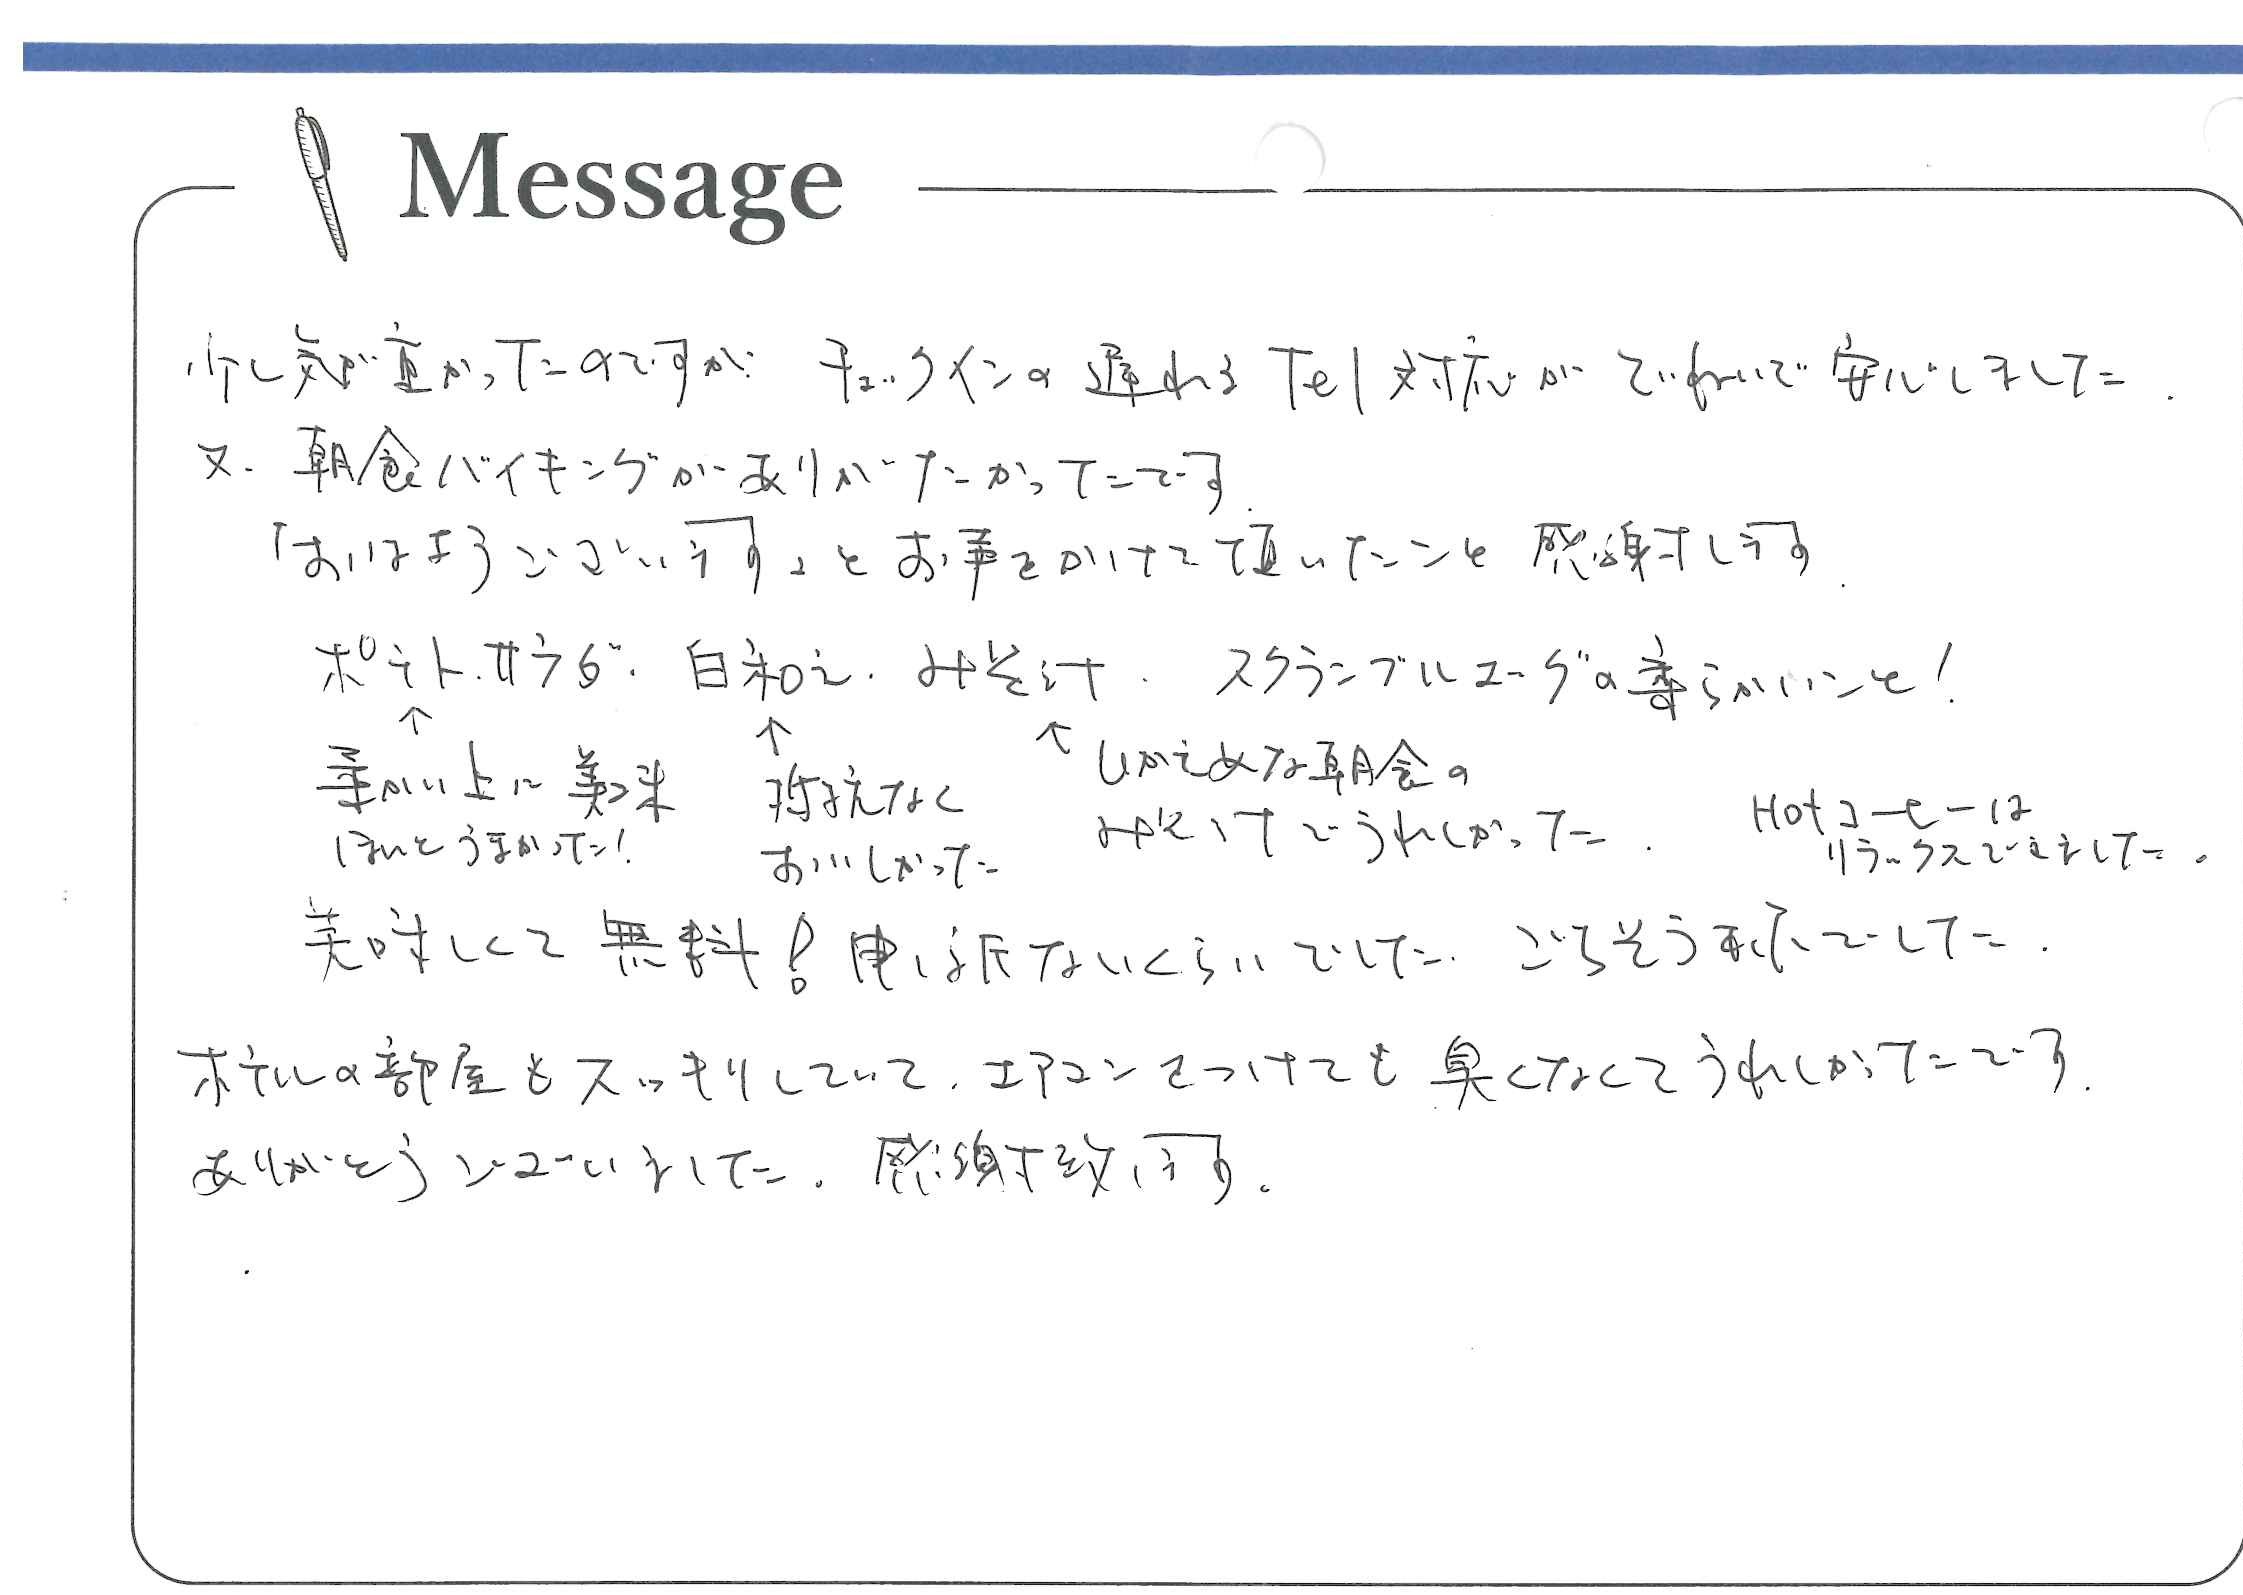 Message
少し気が重かったのですが チェックインの遅れる Tel 対応が ていねいで 安心しました.
又. 朝食バイキングが ありがたかったです.
「おはようございます」と お声をかけて頂いたこと 感謝します.
ポテト.サラダ. 白和え. みそ汁. スクランブルエッグの 柔らかいこと!
↑ ↑ ↑
柔かい上に
ほんとうまかった!
抵抗なく
おいしかった
ひかえめな 朝食の
みそ汁でうれしかった.
Hotコーヒーは
リラックスできました。
美味しくて 無料! 申し訳ないくらいでした. ごちそう様でした.
ホテルの部屋もスッキリしていて. エアコンをつけても 臭くなくて うれしかったです.
ありがとうございました. 感謝致します。